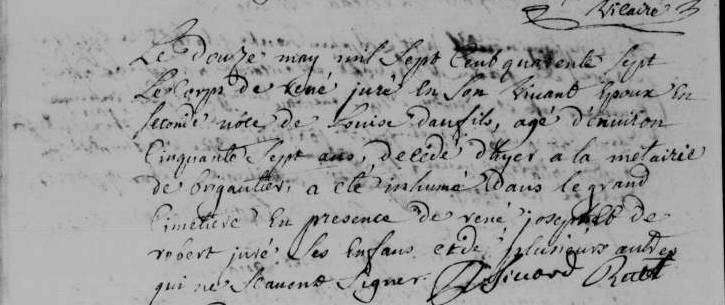 Vicaire
Le douze may mil Sept Cent quarente Sept
Le Corps de rené juré En Son Vivant Epoux En
seconde nôce de Louise daufils, agé d'Environ
Cinquante Sept ans, decédé d'hyer a la métairie
de brigautier, a eté inhumé dans le grand
Cimetiere En presence de rené joseph et de
robert juré Ses Enfans et de plusieurs autres
qui ne Scavent Signer.